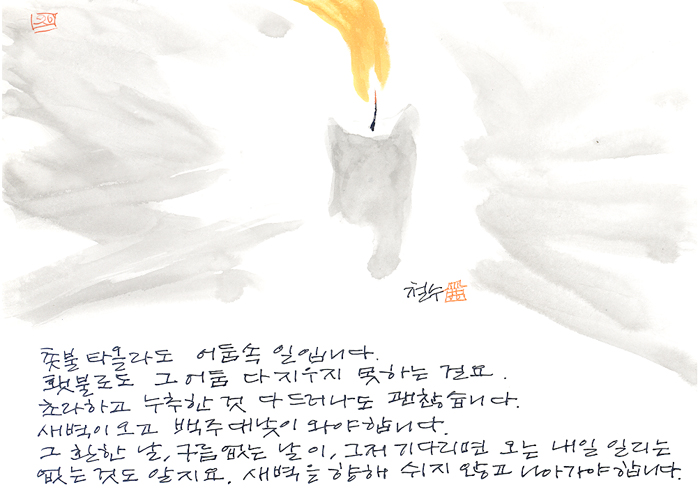 철수
촛불 타올라도 어둠속 일입니다.
횃불로도 그 어둠 다 지우지 못하는 걸요.
초라하고 누추한 것 다 드러나도 괜찮습니다.
새벽이 오고 백주 대낮이 와야 합니다.
그 환한 날, 구름 없는 날이, 그저 기다리면 오는 내일 일리는
없는 것도 알지요. 새벽을 향해 쉬지 않고 나아가야 합니다.